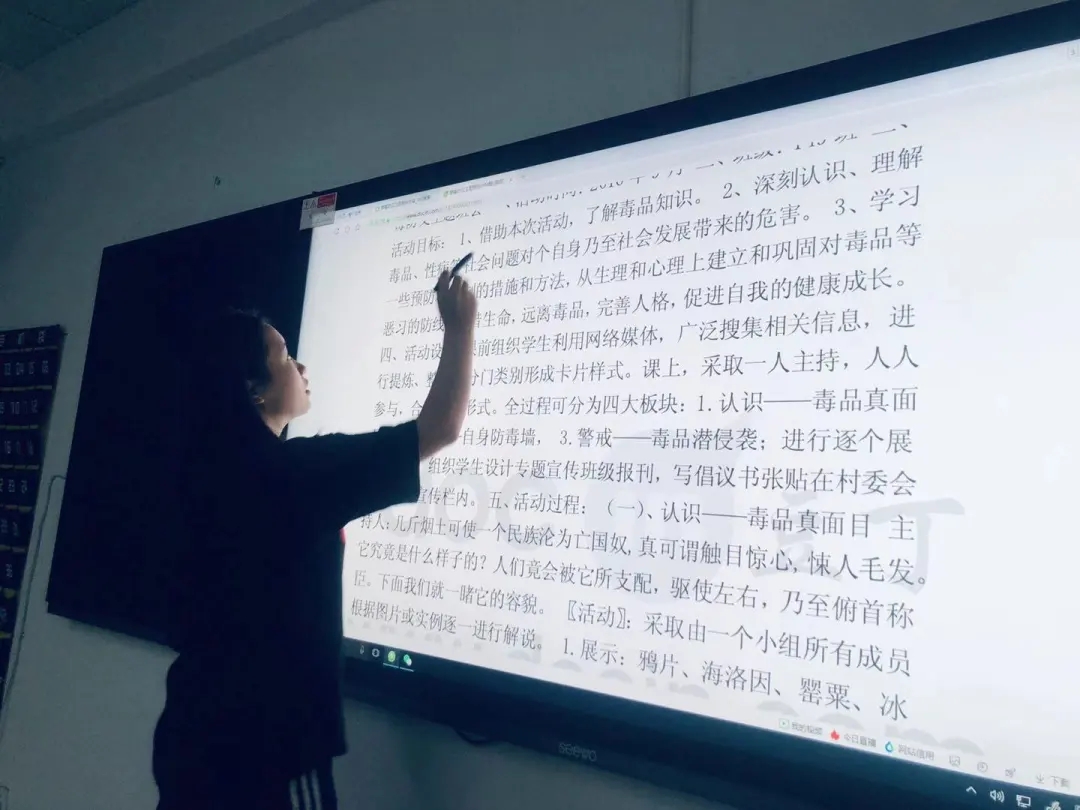 活动目标： 1、借助本次活动，了解毒品知识。 2、深刻认识、理解
毒品、性病 社会问题对个自身乃至社会发展带来的危害。 3、学习
一些预防 的措施和方法，从生理和心理上建立和巩固对毒品等
恶习的防线 生命，远离毒品，完善人格，促进自我的健康成长。
四、活动设 前组织学生利用网络媒体，广泛搜集相关信息，进
行提炼、 分门类别形成卡片样式。课上，采取一人主持，人人
参与，合 形式。全过程可分为四大板块：1.认识——毒品真面
自身防毒墙， 3.警戒——毒品潜侵袭；进行逐个展
组织学生设计专题宣传班级报刊，写倡议书张贴在村委会
宣传栏内。五、活动过程： （一）、认识——毒品真面目 主
持人：几斤烟土可使一个民族沦为亡国奴,真可谓触目惊心,悚人毛发。
它究竟是什么样子的？人们竟会被它所支配，驱使左右，乃至俯首称
臣。下面我们就一睹它的容貌。〖活动〗：采取由一个小组所有成员
根据图片或实例逐一进行解说。 1.展示：鸦片、海洛因、罂粟、冰
我的视频 今日直播 网站信用 下载
seewo